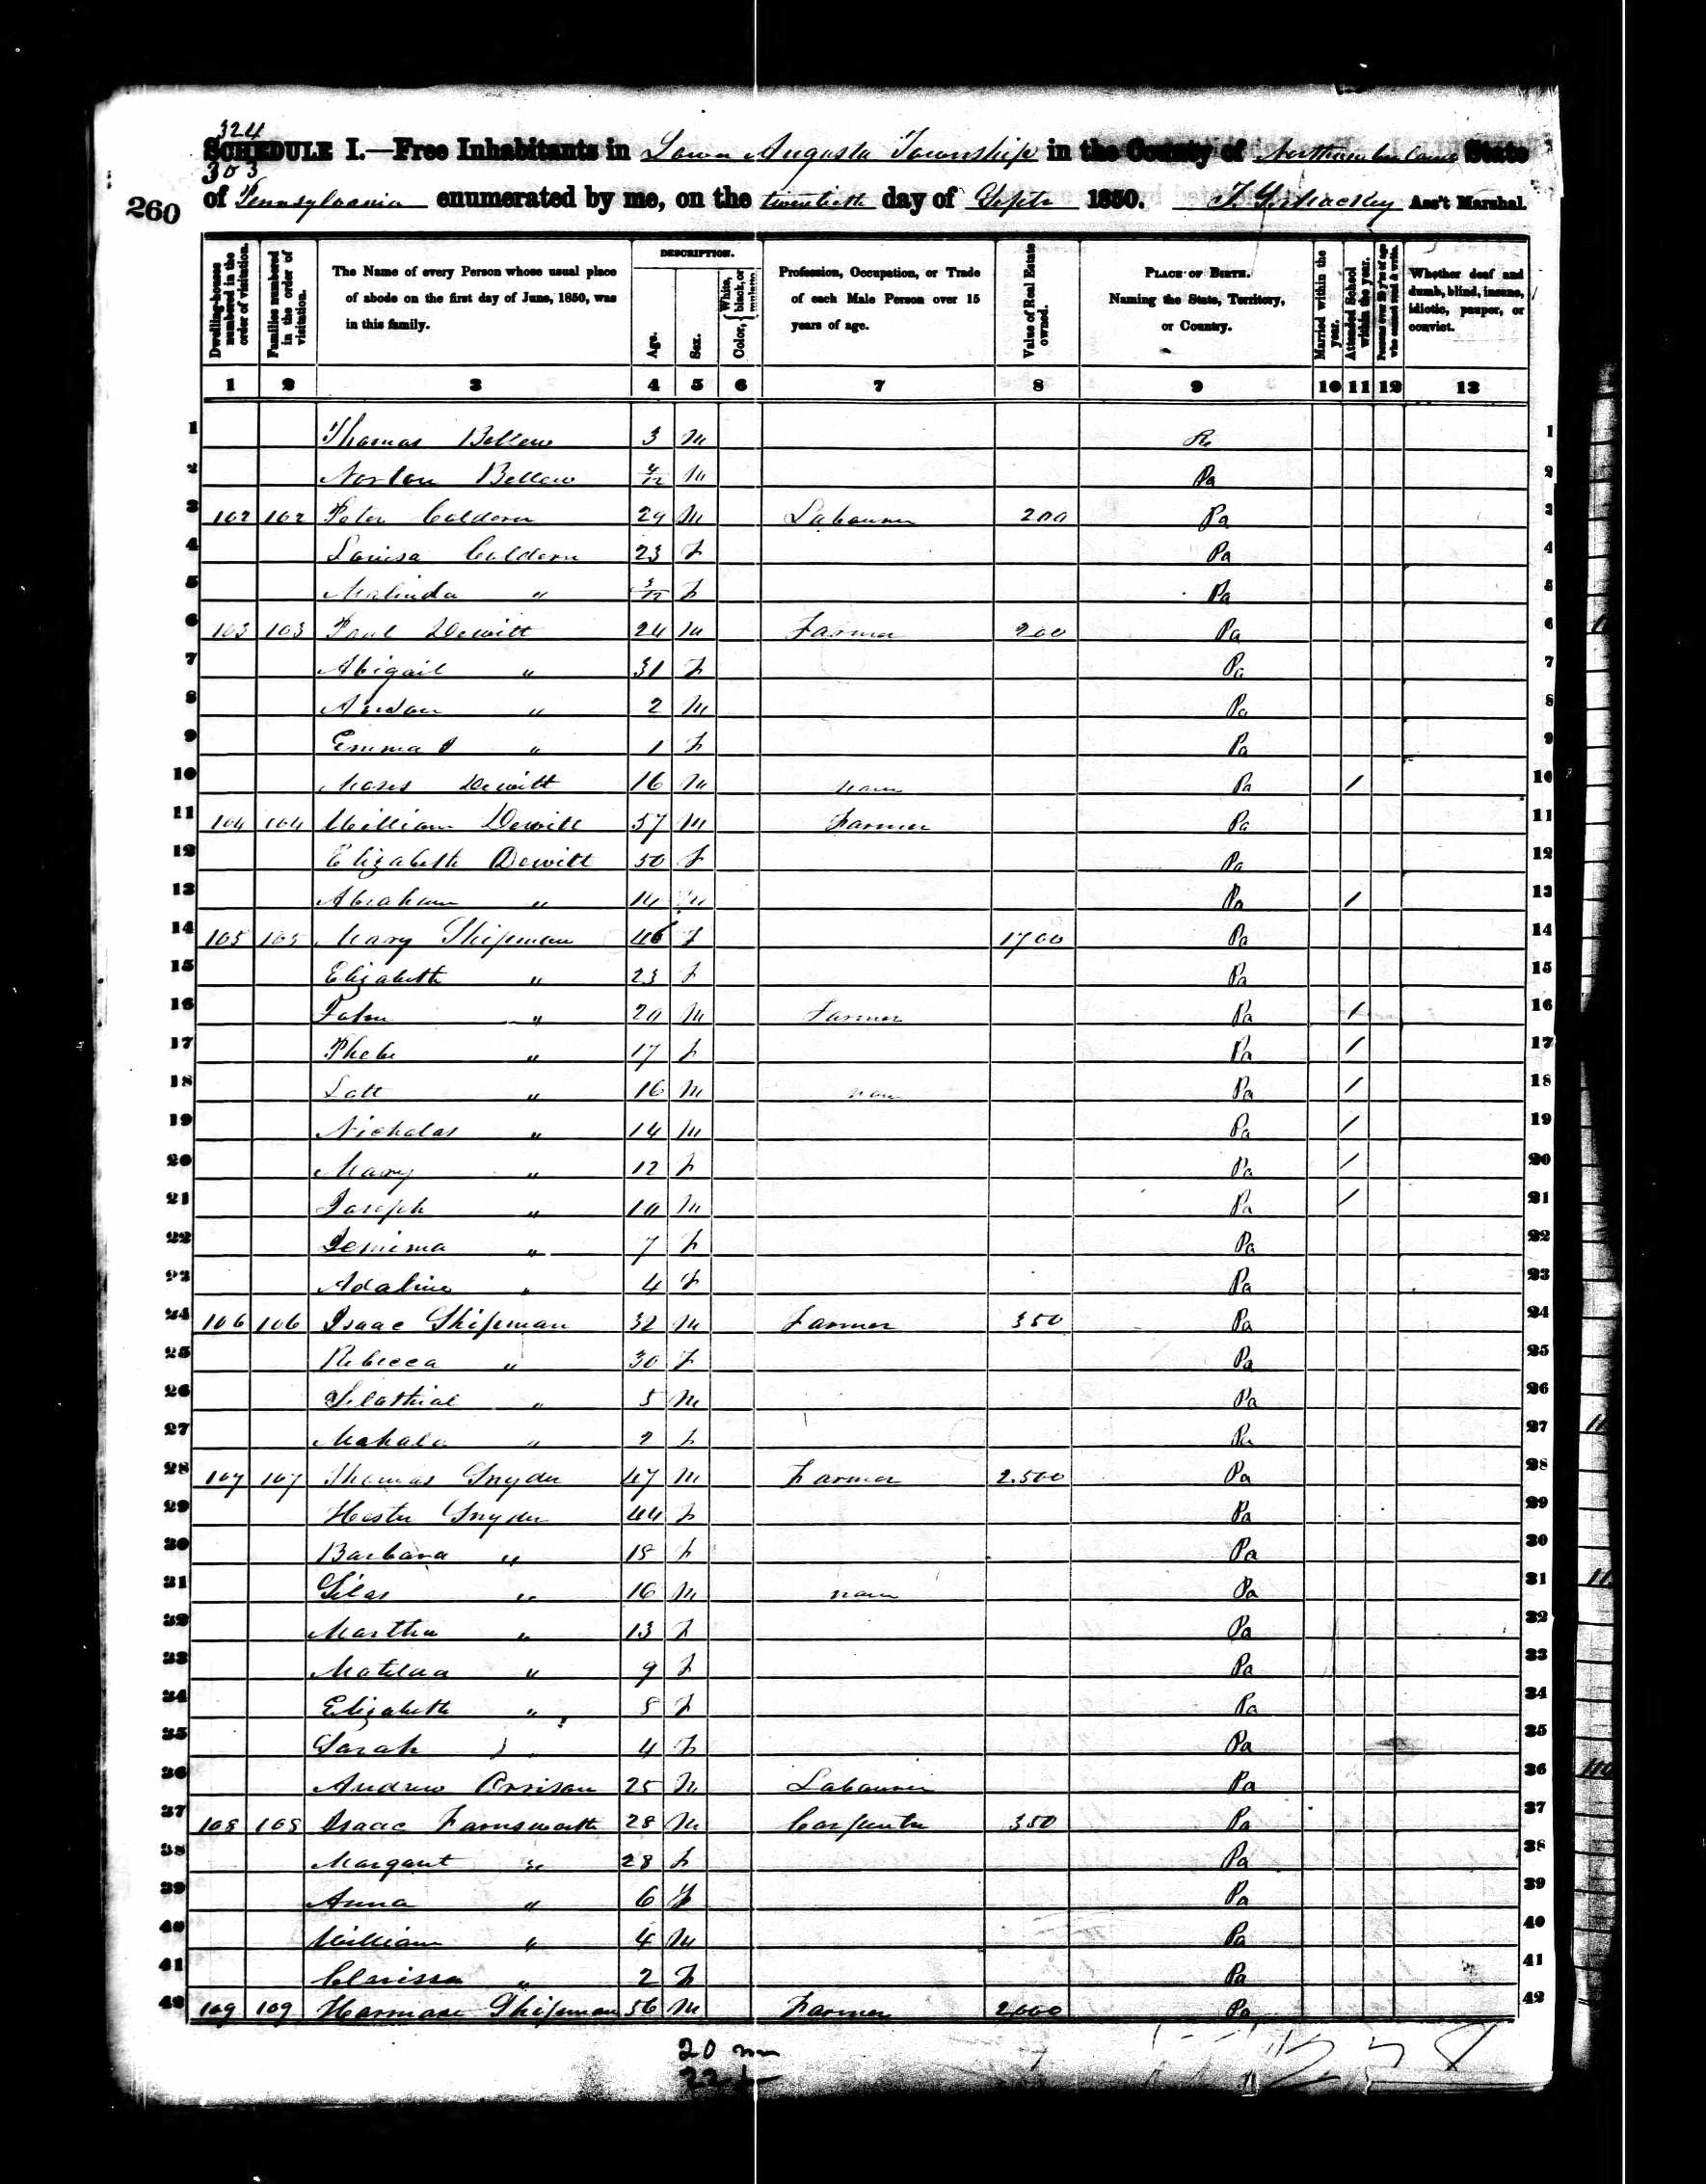 324
SCHEDULE I.—Free Inhabitants in Lower Augusta Township in the County of Northumberland State
303
260
of Pennsylvania enumerated by me, on the twentieth day of Septr 1850. Ass't Marshal.
Dwelling-houses numbered in the order of visitation.
Families numbered in the order of visitation.
The Name of every Person whose usual place of abode on the first day of June, 1850, was in this family.
DESCRIPTION.
Age.
Sex.
Color, { White, black, or mulatto.
Profession, Occupation, or Trade of each Male Person over 15 years of age.
Value of Real Estate owned.
PLACE OF BIRTH. Naming the State, Territory, or Country.
Married within the year.
Attended School within the year.
Persons over 20 y'rs of age who cannot read & write.
Whether deaf and dumb, blind, insane, idiotic, pauper, or convict.
1 2 3 4 5 6 7 8 9 10 11 12 13
1 Thomas Bellew 3 M Pa 1
2 Norton Bellew 4/12 M Pa 2
3 102 102 Peter Culdern 29 M Labourer 200 Pa 3
4 Louisa Culdern 23 F Pa 4
5 Malinda " 3/12 F Pa 5
6 103 103 Paul Dewitt 24 M Farmer 200 Pa 6
7 Abigail " 31 F Pa 7
8 " 2 M Pa 8
9 Emma " 1 F Pa 9
10 Moses Dewitt 16 M none Pa / 10
11 104 104 William Dewitt 57 M Farmer Pa 11
12 Elizabeth Dewitt 50 F Pa 12
13 Abraham " 14 M Pa / 13
14 105 105 Mary Shipman 46 F 1700 Pa 14
15 Elizabeth " 23 F Pa 15
16 John " 20 M Farmer Pa / 16
17 Phebe " 17 F Pa / 17
18 Lott " 16 M none Pa / 18
19 Nicholas " 14 M Pa / 19
20 Mary " 12 F Pa / 20
21 Joseph " 10 M Pa / 21
22 Jemima " 7 F Pa 22
23 Adaline " 4 F Pa 23
24 106 106 Isaac Shipman 32 M Farmer 350 Pa 24
25 Rebecca " 30 F Pa 25
26 Silathial " 5 M Pa 26
27 Mahala " 2 F Pa 27
28 107 107 Thomas Snyder 47 M Farmer 2.500 Pa 28
29 Hester Snyder 44 F Pa 29
30 Barbara " 18 F Pa 30
31 Silas " 16 M none Pa 31
32 Martha " 13 F Pa 32
33 Matilda " 9 F Pa 33
34 Elizabeth " 8 F Pa 34
35 Sarah " 4 F Pa 35
36 Andrew Orrison 25 M Labourer Pa 36
37 108 108 Isaac Farnsworth 28 M Carpenter 350 Pa 37
38 Margaret " 28 F Pa 38
39 Anna " 6 F Pa 39
40 William " 4 M Pa 40
41 Clarissa " 2 F Pa 41
42 109 109 Harman Shipman 56 M Farmer 2,000 Pa 42
20 m
22 f